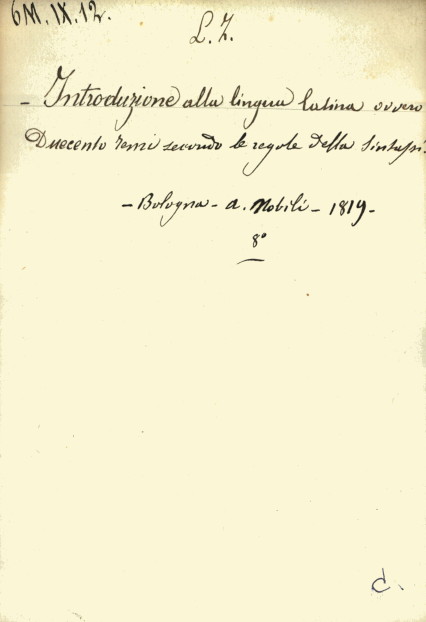 6M.IX.12.
L.Z.
- Introduzione alla lingua latina ovvero
Duecento temi secondo le regole della sintassi.
- Bologna - A. Nobili - 1819 -
8°
C.